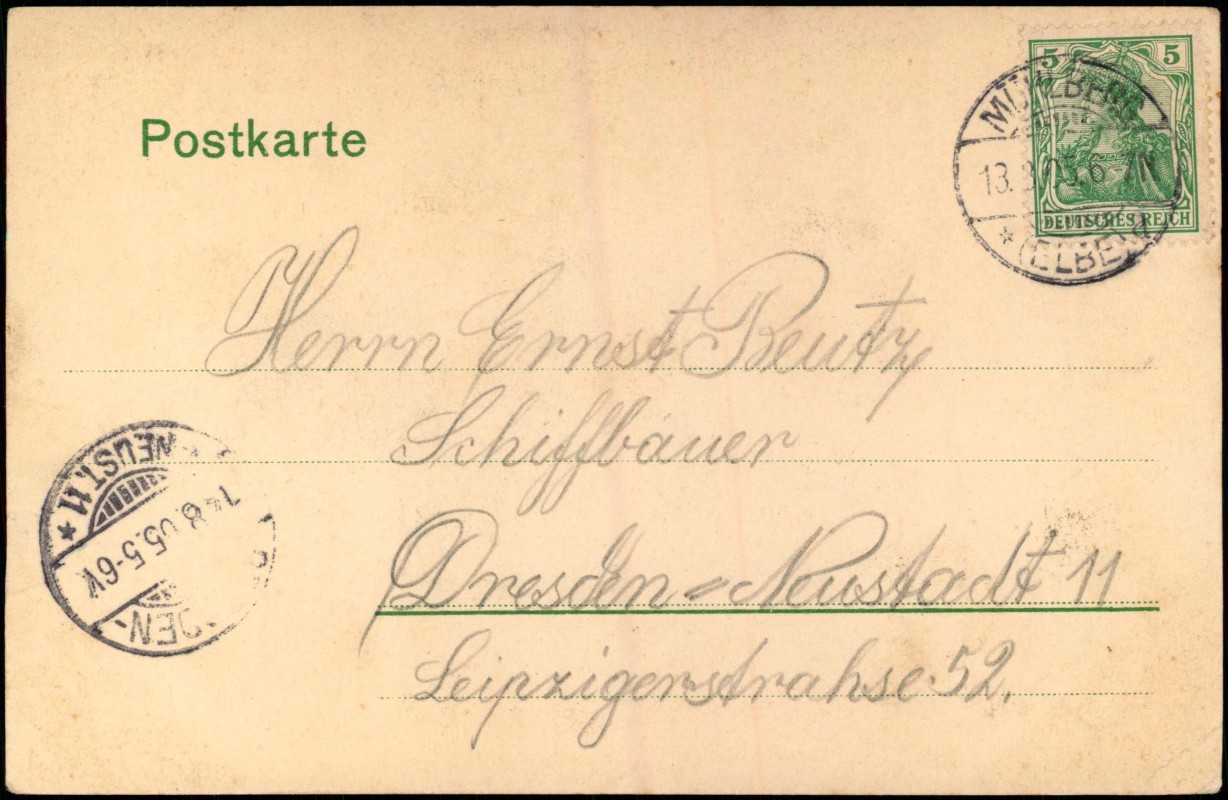 Postkarte
5 5
DEUTSCHES REICH
MÜHLBERG
13.8.05.6-7N
* (ELBE) d
Herrn Ernst Reutz
Schiffbauer
Dresden=Neustadt 11
Leipzigerstrahse 52.
NEUST. 11 *
14.8.05.5-6V.
DEN-